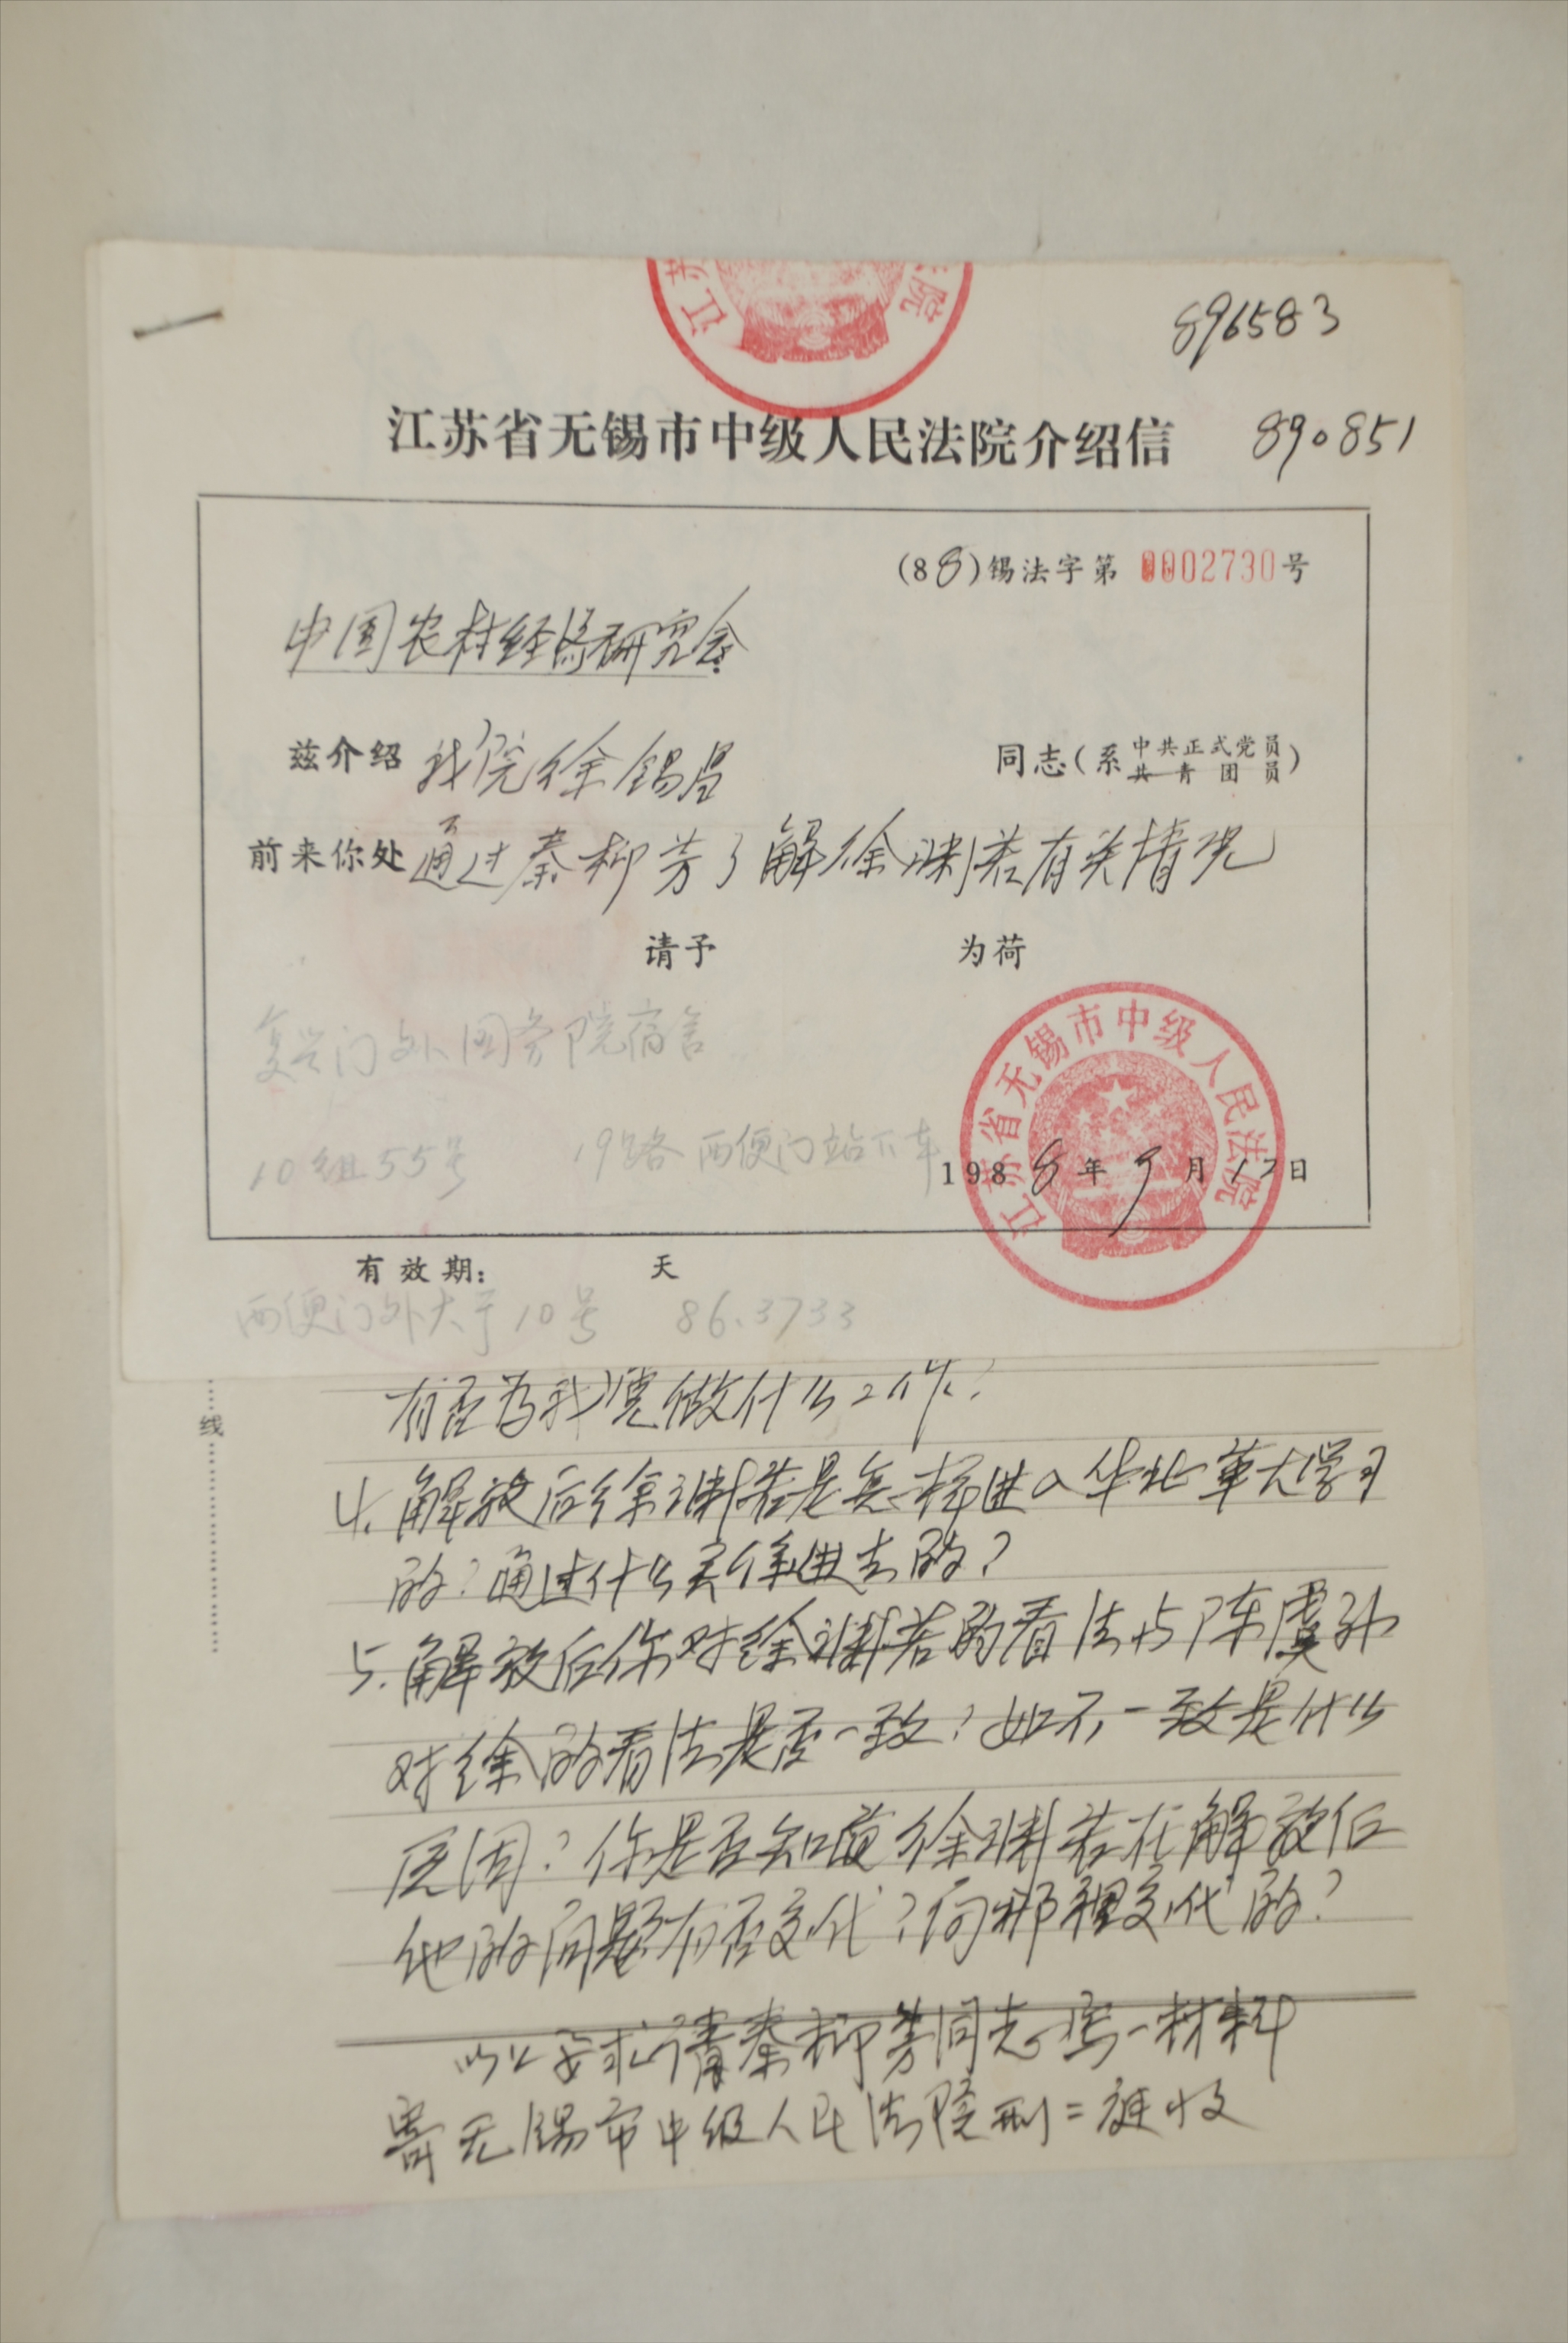 江苏 院
896583
江苏省无锡市中级人民法院介绍信 890851
(88)锡法字第 0002730号
中国农村经济研究会:
兹介绍 我院徐锡昌 同志(系 中共正式党员 共青团员)
前来你处 通过秦柳芳了解徐渊若有关情况
请予 为荷
复兴门外国务院宿舍
10组55号 19路西便门站下车
江苏省无锡市中级人民法院
1988年9月17日
有效期: 天
西便门外大于10号 86.3733
有否为我党做什么工作?
线
4. 解放后徐渊若是怎样进入华北革大学习
的?通过什么关系进去的?
5. 解放后你对徐渊若的看法与陈虞孙
对徐的看法是否一致?如不一致是什么
原因?你是否知道徐渊若在解放后
他的问题有否交代?向哪裡交代的?
以上要求请秦柳芳同志写一材料
寄无锡市中级人民法院刑二庭收